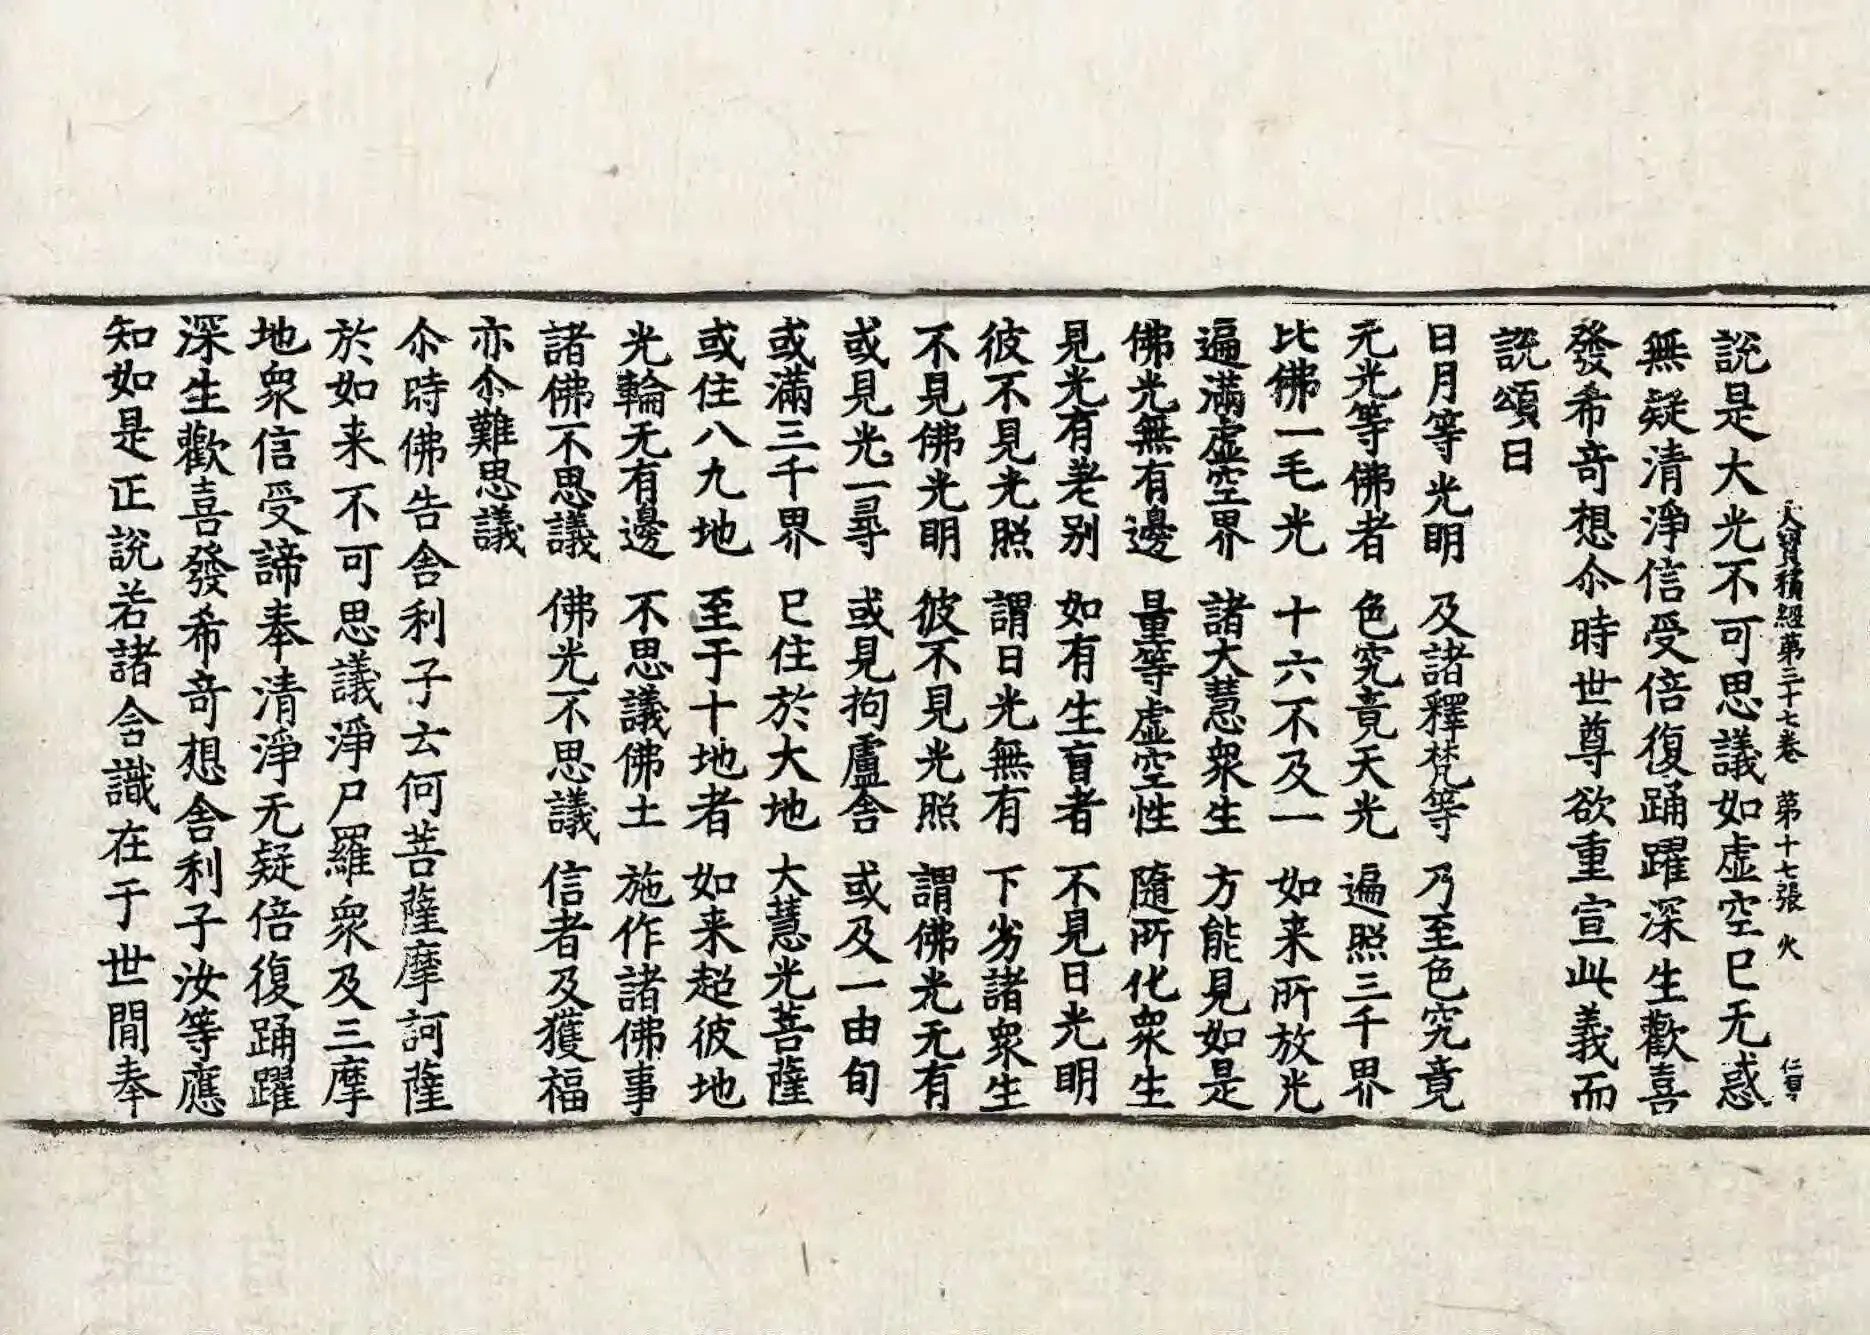 大寶積經第三十七卷 第十七張 火 仁賣
說是大光不可思議如虛空已无惑
無疑清淨信受倍復踊躍深生歡喜
發希竒想尒時世尊欲重宣此義而
說頌曰
日月等光明 及諸釋梵等 乃至色究竟
无光等佛者 色究竟天光 遍照三千界
比佛一毛光 十六不及一 如来所放光
遍滿虛空界 諸大慧衆生 方能見如是
佛光無有邊 量等虛空性 隨所化衆生
見光有差别 如有生盲者 不見日光明
彼不見光照 謂日光無有 下劣諸衆生
不見佛光明 彼不見光照 謂佛光无有
或見光一尋 或見拘盧舍 或及一由旬
或滿三千界 已住於大地 大慧光菩薩
或住八九地 至于十地者 如来超彼地
光輪无有邊 不思議佛土 施作諸佛事
諸佛不思議 佛光不思議 信者及獲福
亦尒難思議
尒時佛告舍利子云何菩薩摩訶薩
於如来不可思議淨尸羅衆及三摩
地衆信受諦奉清淨无疑倍復踊躍
深生歡喜發希竒想舍利子汝等應
知如是正說若諸含識在于世閒奉